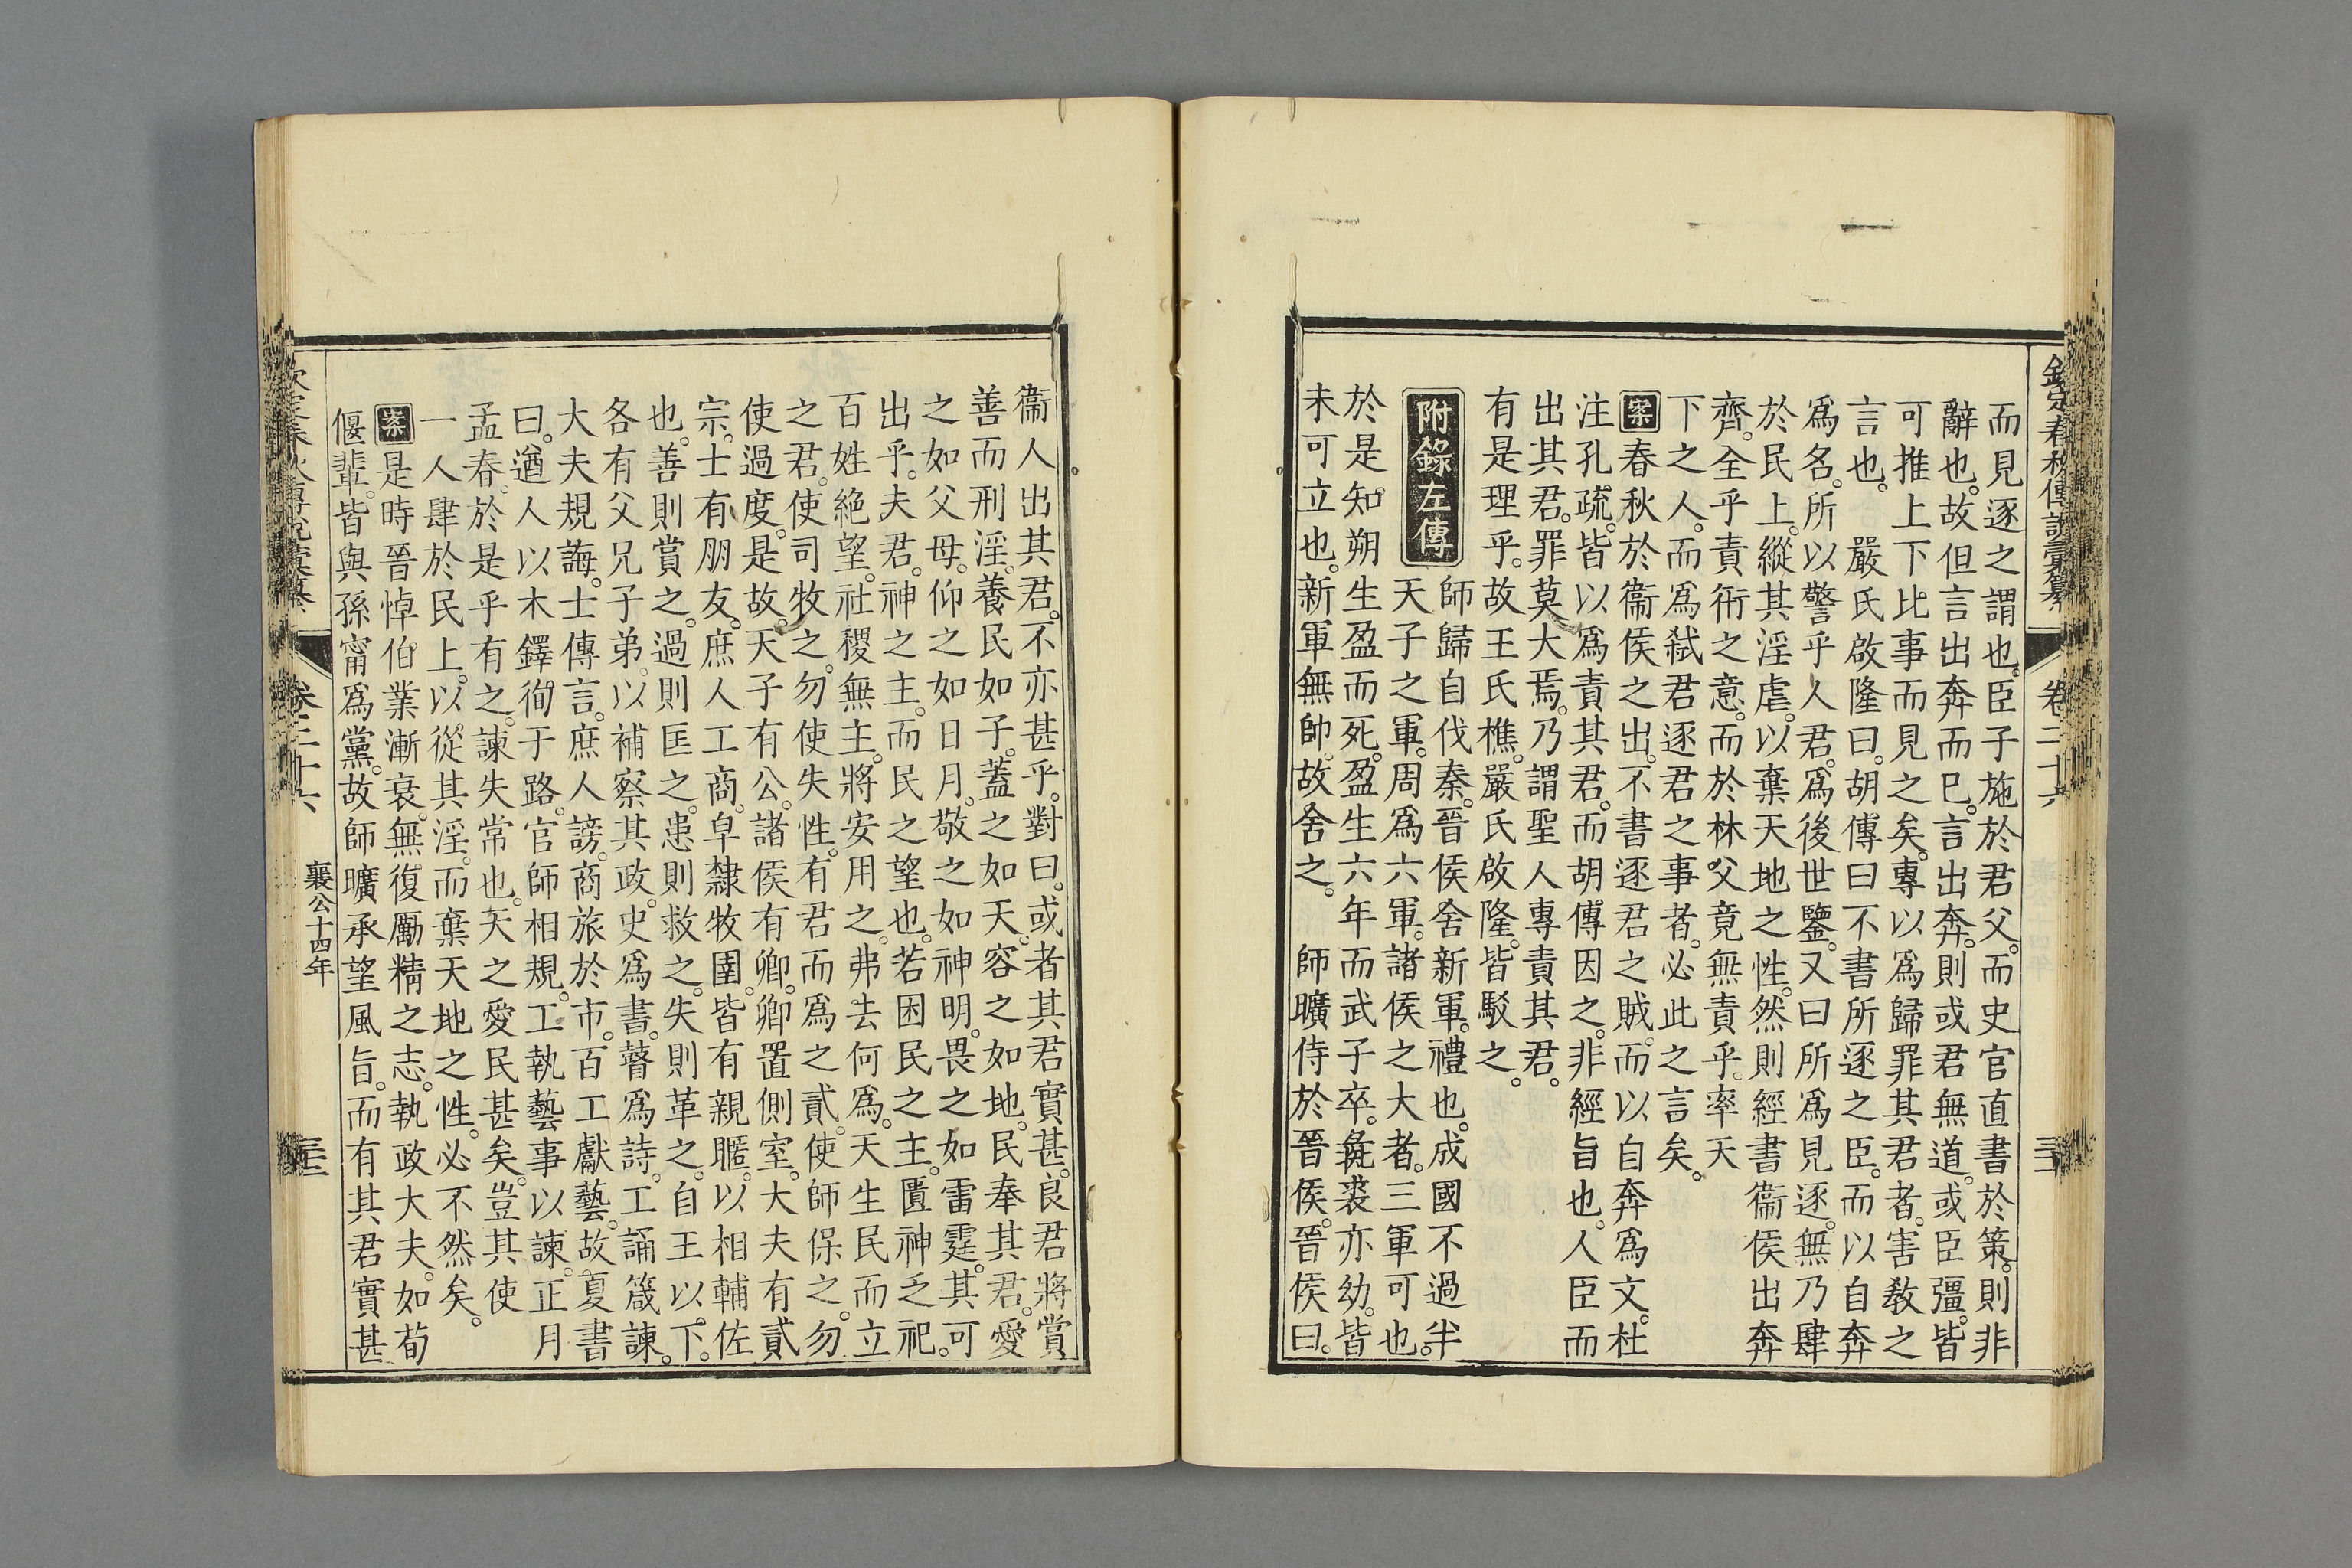 欽定春秋傳說彙纂 卷二十六
而見逐之謂也。臣子施於君父。而史官直書於策。則非
辭也。故但言出奔而已。言出奔。則或君無道。或臣彊。皆
可推上下比事而見之矣。專以爲歸罪其君者。害敎之
言也。 嚴氏啟隆曰。胡傳曰不書所逐之臣。而以自奔
爲名。所以警乎人君。爲後世鑒。又曰所爲見逐。無乃肆
於民上。縱其淫虐。以棄天地之性。然則經書衞侯出奔
齊。全乎責衎之意。而於林父竟無責乎。率天
下之人。而爲弑君逐君之事者。必此之言矣。
案春秋於衞侯之出。不書逐君之賊。而以自奔爲文。杜
注孔疏。皆以爲責其君。而胡傳因之。非經旨也。人臣而
出其君。罪莫大焉。乃謂聖人專責其君。
有是理乎。故王氏樵。嚴氏啟隆。皆駁之。
附錄左傳
師歸自伐秦。晉侯舍新軍。禮也。成國不過半
天子之軍。周爲六軍。諸侯之大者。三軍可也。
於是。知朔生盈而死。盈生六年而武子卒。彘裘亦幼。皆
未可立也。新軍無帥。故舍之。 師曠侍於晉侯。晉侯曰。
衞人出其君。不亦甚乎。對曰。或者其君實甚。良君將賞
善而刑淫。養民如子。蓋之如天。容之如地。民奉其君。愛
之如父母。仰之如日月。敬之如神明。畏之如雷霆。其可
出乎。夫君。神之主。而民之望也。若困民之主。匱神乏祀。
百姓絕望。社稷無主。將安用之。弗去何爲。天生民而立
之君。使司牧之。勿使失性。有君而爲之貳。使師保之。勿
使過度。是故。天子有公。諸侯有卿。卿置側室。大夫有貳
宗。士有朋友。庶人工商。皁隸牧圉。皆有親暱。以相輔佐
也。善則賞之。過則匡之。患則救之。失則革之。自王以下。
各有父兄子弟。以補察其政。史爲書。瞽爲詩。工誦箴諫。
大夫規誨。士傳言。庶人謗。商旅於市。百工獻藝。故夏書
曰。遒人以木鐸。徇于路。官師相規。工執藝事以諫。正月
孟春。於是乎有之。諫失常也。天之愛民甚矣。豈其使
一人肆於民上。以從其淫。而棄天地之性。必不然矣。
案是時晉悼。伯業漸衰。無復勵精之志。執政大夫。如荀
偃輩。皆與孫甯爲黨。故師曠承望風旨。而有其君實甚
欽定春秋傳說彙纂 卷二十六 襄公十四年